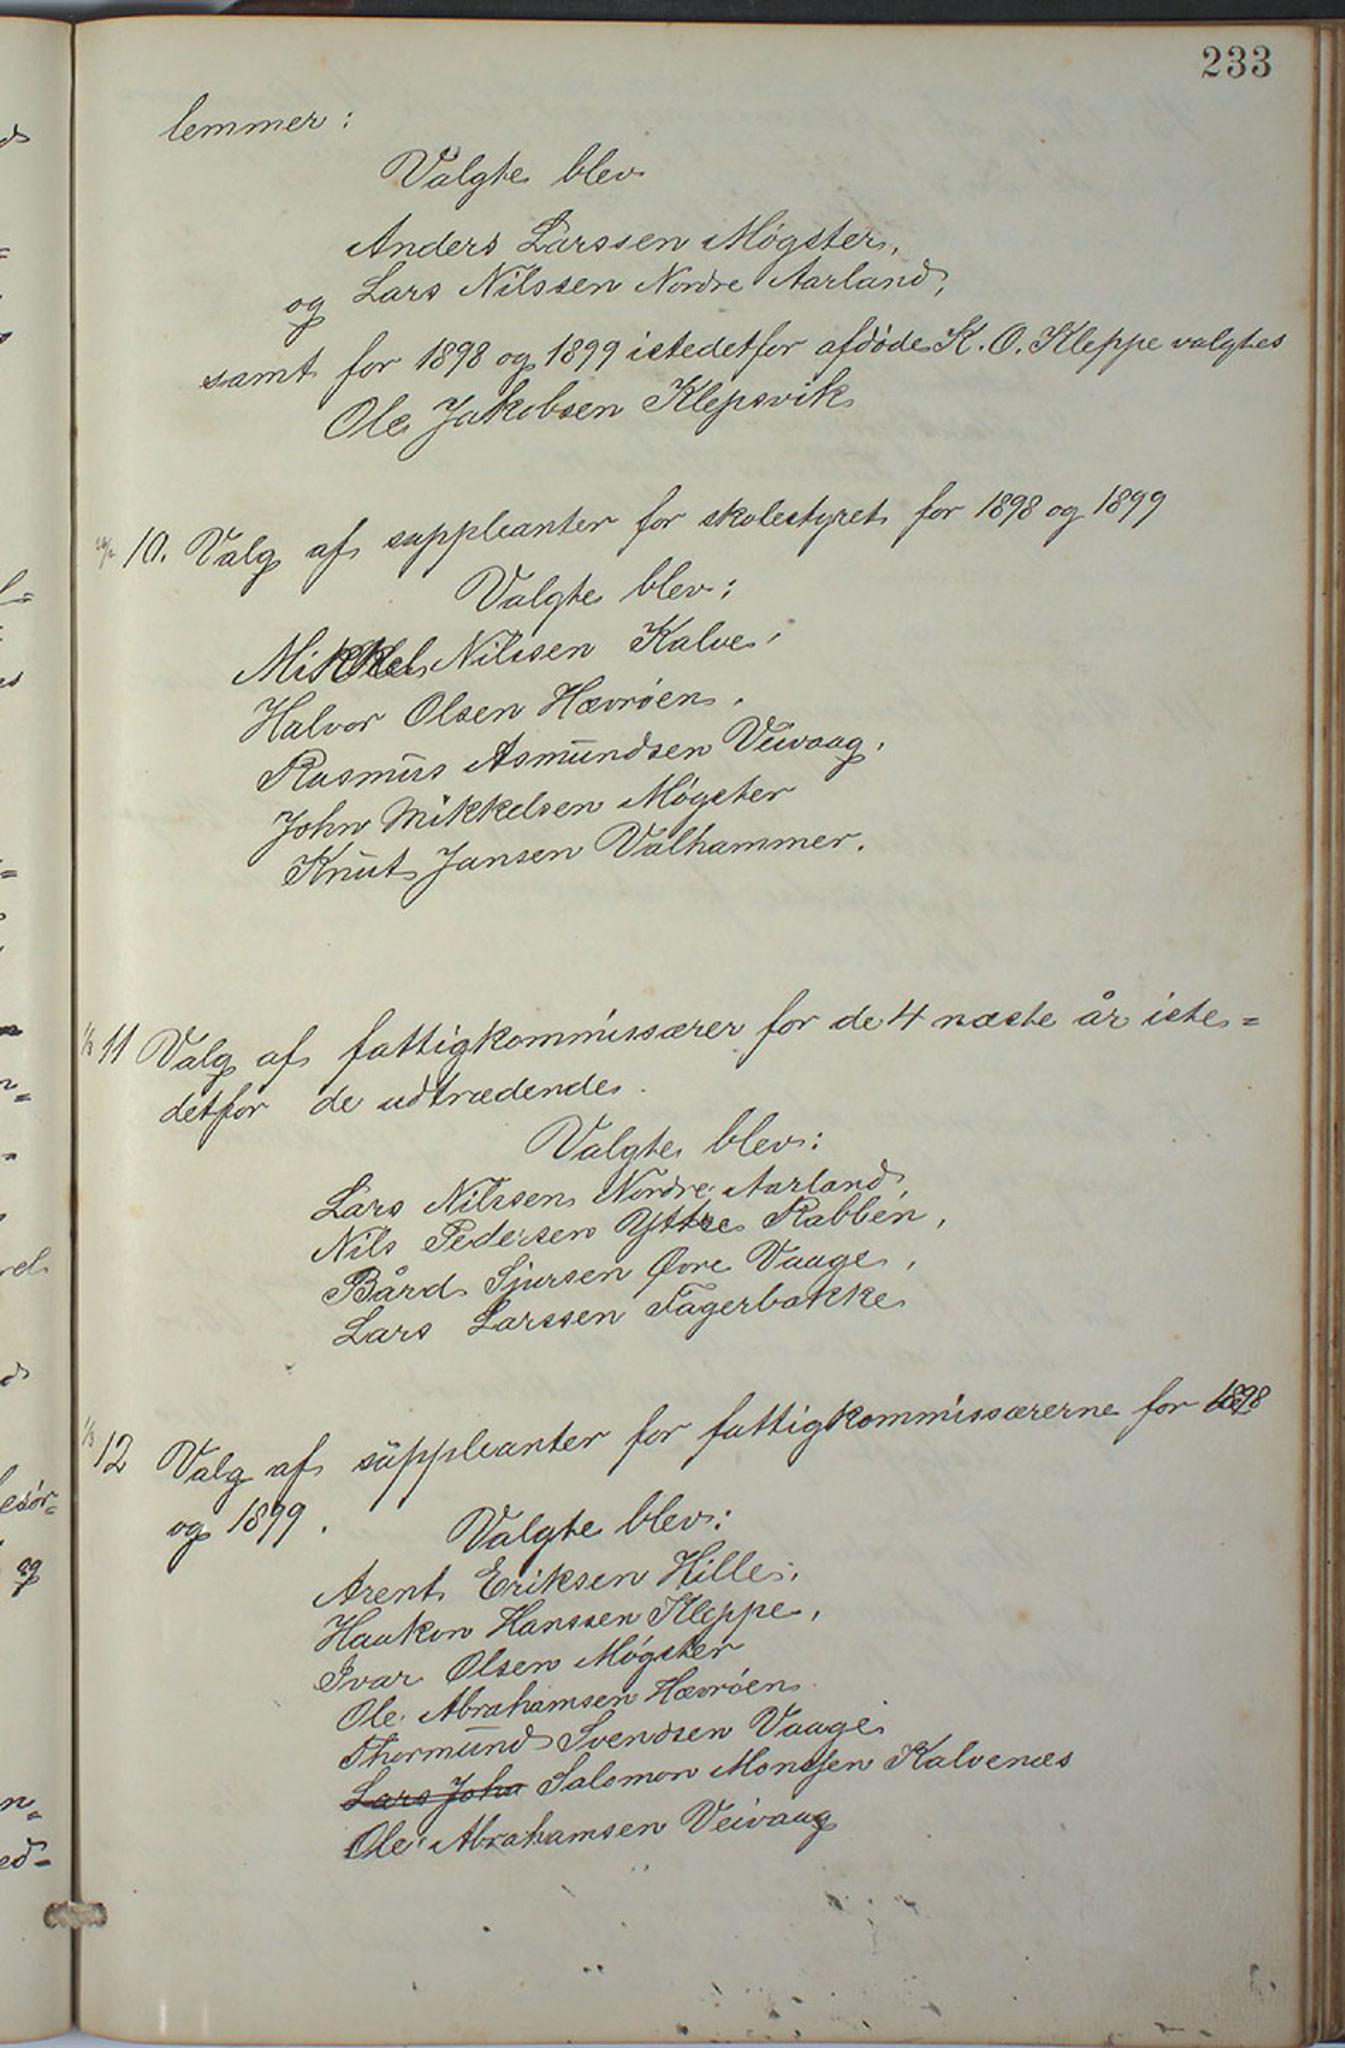 233
lemmer:
Valgte blev
Anders Larssen Møgster,
og Lars Nilssen Nordre Aarland,
samt for 1898 og 1899 istedetfor afdøde K. O. Kleppe valgtes
Ole Jakobsen Klepsvik
10. Valg af suppleanter for skolestyret for 1898 og 1899
Valgte blev:
Mikkel Nilssen Kalve,
Halvor Olsen Hævrøen,
Rasmus Asmundsen Veivaag,
John Mikkelsen Møgster
Knut Jansen Valhammer.
1/3 11 Valg af fattigkommissærer for de 4 næste år iste=
detfor de udtrædende.
Valgte blev:
Lars Nilssen Nordre Aarland,
Nils Pedersen Yttre Rabben,
Bård Sjursen Øvre Vaage,
Lars Larssen Fagerbakke
1/3 12 Valg af suppleanter for fattigkommissærerne for 1898
og 1899.
Valgte blev:
Arent Eriksen Hille,
Haakon Hanssen Kleppe,
Ivar Olsen Møgster
Ole Abrahamsen Hævrøen
Thormund Svendsen Vaage
Lars John Salomon Monsen Kalvenæs
Ole Abrahamsen Veivaag